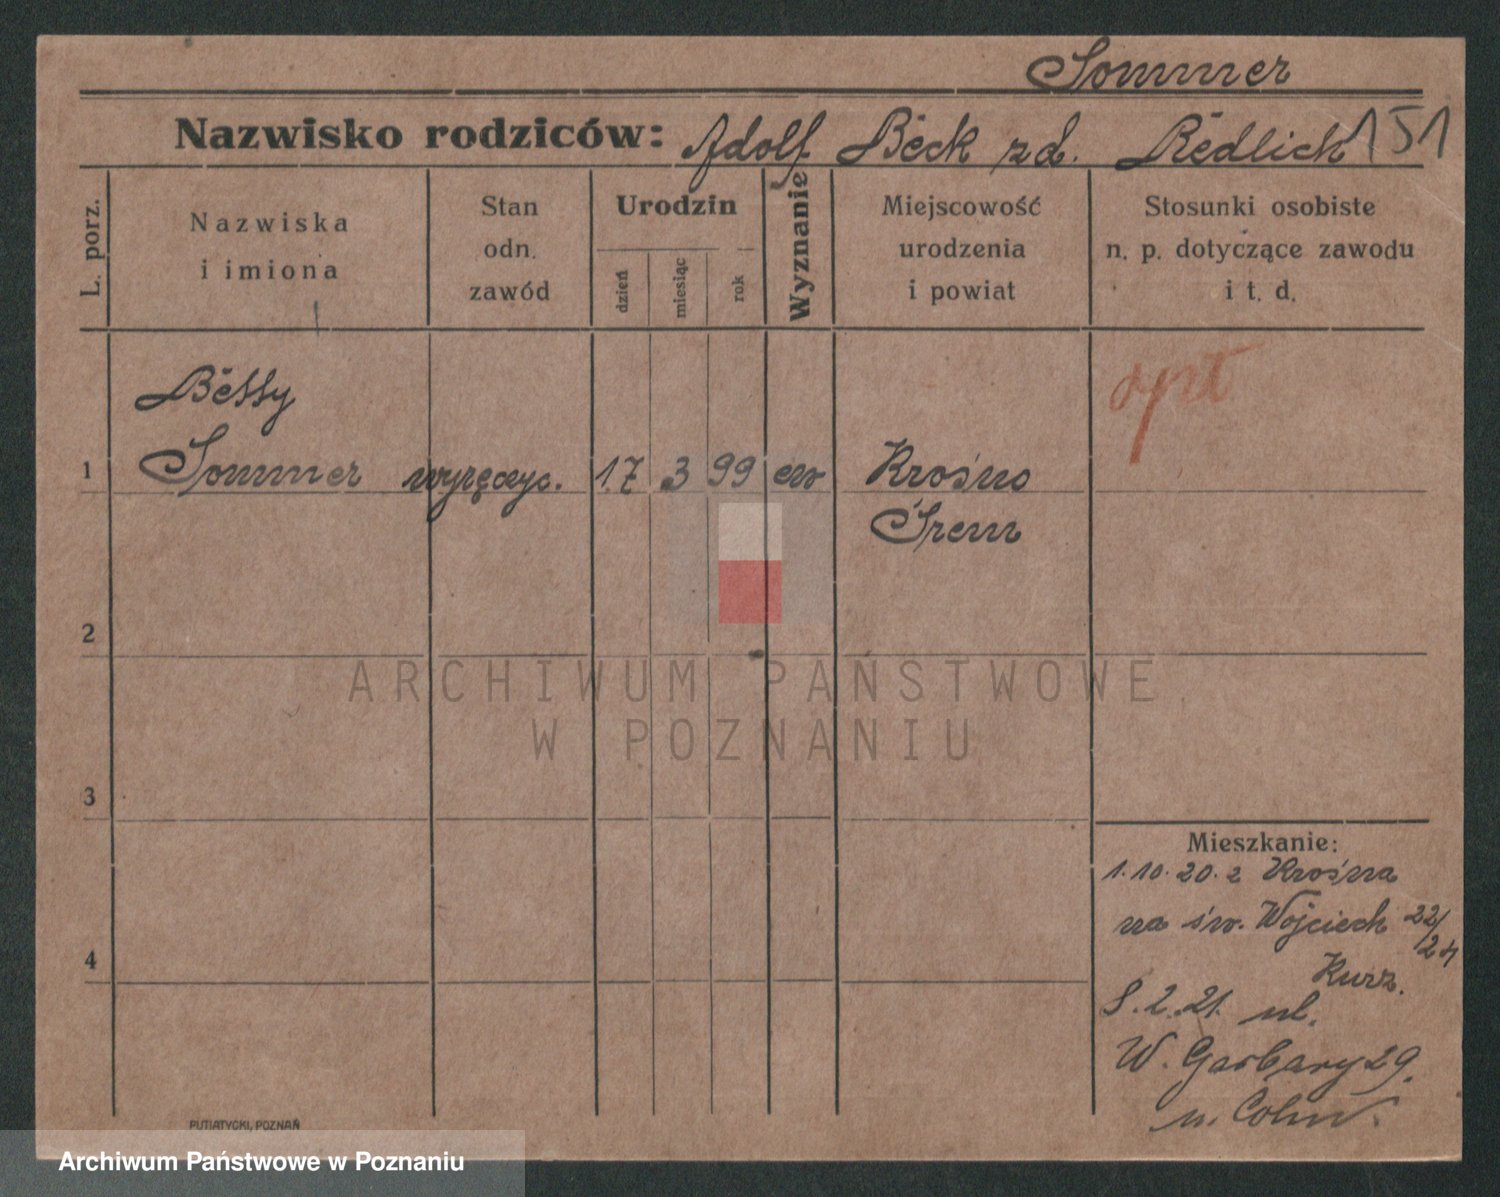 Sommer
Nazwisko rodziców: Adolf Beck zd. Redlich 151
L. porz.
Nazwiska
i imiona
Stan
odn.
zawód
Urodzin
dzień
miesiąc
rok
Wyznanie
Miejscowość
urodzenia
i powiat
Stosunki osobiste
n. p. dotyczące zawodu
i t. d.
Betty
1 Sommer wyręczyc. 17 3 99 ew Krosno
Śrem
2
3
4
Mieszkanie:
1.10.20. z Krosna
na św. Wojciech 22/24
Kurz.
8.2.21. ul.
W. Garbary 29.
u. Cohn.
PUTIATYCKI, POZNAŃ
ARCHIWUM PAŃSTWOWE
W POZNANIU
Archiwum Państwowe w Poznaniu